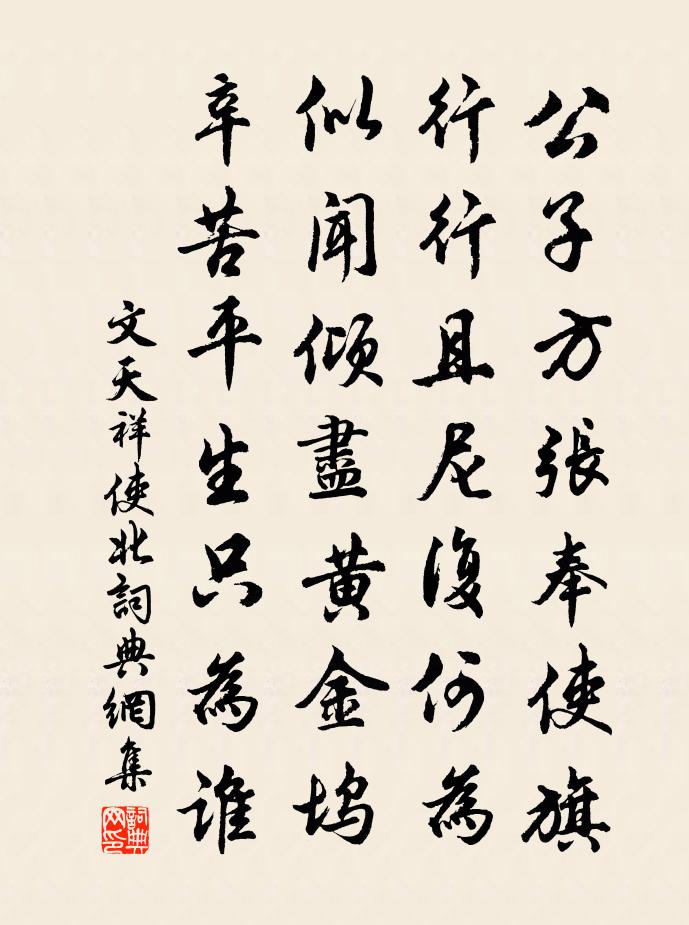 公子方張奉使旗
行行且尼復何為
似聞傾盡黃金塢
辛苦平生只為誰
文天祥使北詞典網集
詞典網印